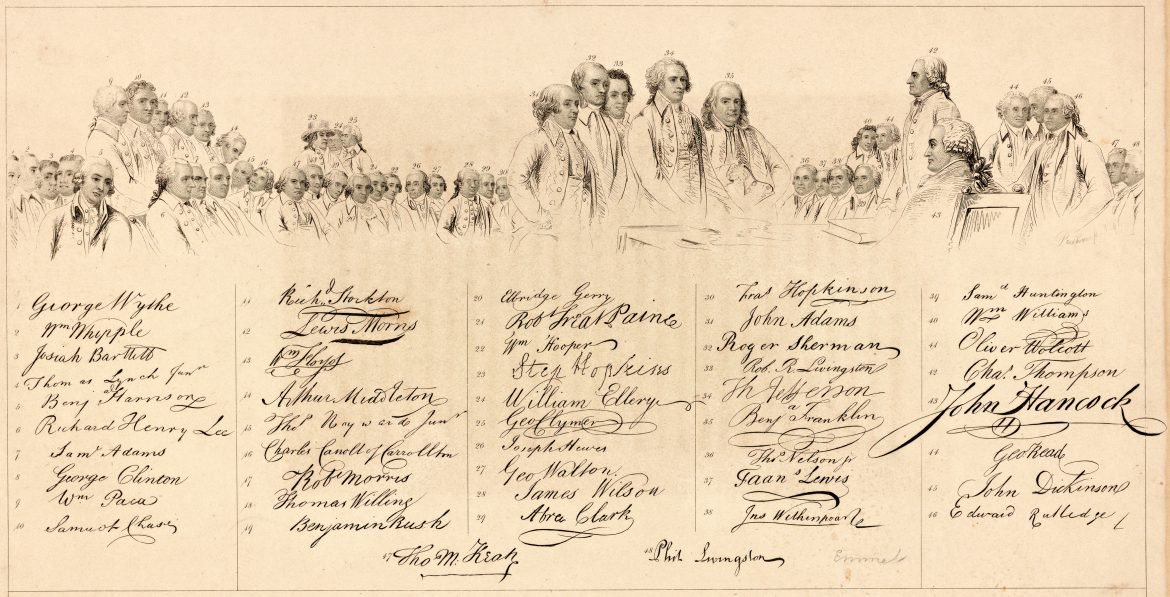 1 George Wythe
2 Wm Whipple
3 Josiah Bartlett
4 Thomas Lynch Junr
5 Benj Harrison
6 Richard Henry Lee
7 Saml Adams
8 George Clinton
9 Wm Paca
10 Samuel Chase
11 Richd Stockton
12 Lewis Morris
13 Wm Floyd
14 Arthur Middleton
15 Thos Heyward Junr
16 Charles Carroll of Carrollton
17 Robt Morris
18 Thomas Willing
19 Benjamin Rush
20 Elbridge Gerry
21 Robt Treat Paine
22 Wm Hooper
23 Step Hopkins
24 William Ellery
25 Geo Clymer
26 Joseph Hewes
27 Geo Walton
28 James Wilson
29 Abra Clark
30 Fras Hopkinson
31 John Adams
32 Roger Sherman
33 Rob. R. Livingston
34 Th Jefferson
35 Benj Franklin
36 Thos Nelson jr
37 Frans Lewis
38 Jno Witherspoon
39 Saml Huntington
40 Wm Williams
41 Oliver Wolcott
42 Chas Thompson
43 John Hancock
44 Geo Read
45 John Dickinson
46 Edward Rutledge
47 Tho M. Kean
48 Phil Livingston
Emmet